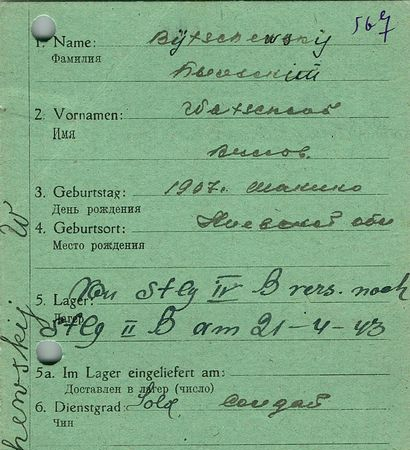 567
1. Name: Bytschewskij
Фамилия
2. Vornamen:
Имя
3. Geburtstag: 1907г.
День рождения
4. Geburtsort: Киевской обл
Место рождения
5. Lager: Von Stlg IV B vers. nach
Лагерь
Stlg II B am 21-4-43
5a. Im Lager eingeliefert am:
Доставлен в лагер (число)
6. Dienstgrad: Sold. солдат
Чин
hewskij W